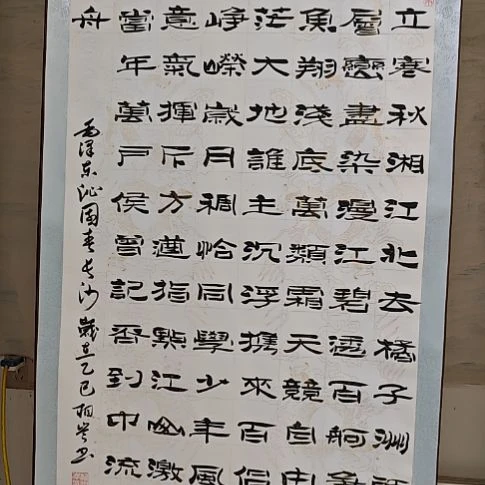 立寒秋湘江北去橘子洲頭
層巒盡染漫江碧透百舸爭
魚翔淺底萬類霜天競自由
茫大地誰主沉浮攜來百侶
崢嶸歲月稠恰同學少年風
意氣揮斥方遒指點江山激
當年萬戶侯曾記否到中流
舟
毛澤東沁園春長沙歲在乙巳書